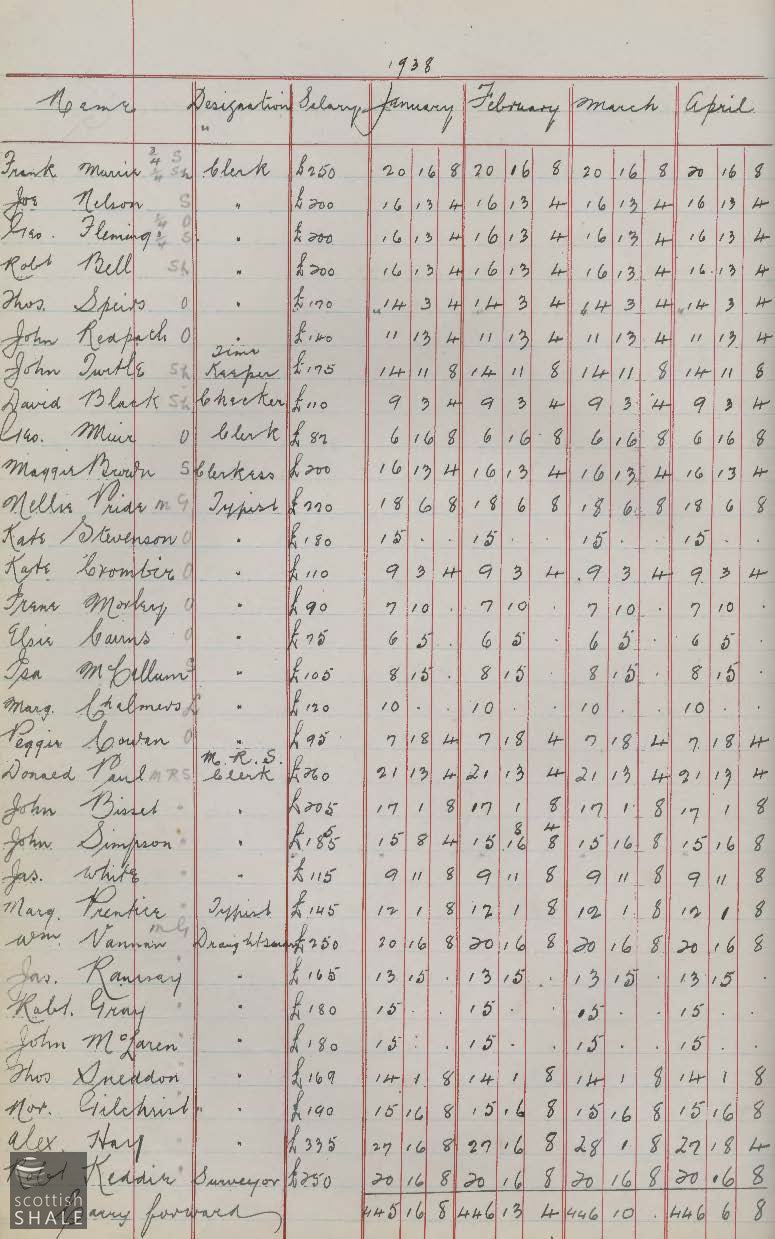 1938
Name Designation Salary January February March April
Frank 3/4 S 1/4 Sh Clerk £250 20 16 8 20 16 8 20 16 8 20 16 8
Joe Nelson S " £200 16 13 4 16 13 4 16 13 4 16 13 4
Geo. Fleming 1/4 O 3/4 S " £200 16 13 4 16 13 4 16 13 4 16 13 4
Robt Bell Sh " £200 16 13 4 16 13 4 16 13 4 16 13 4
Thos. Speirs O " £170 14 3 4 14 3 4 14 3 4 14 3 4
John Redpath O " £140 11 13 4 11 13 4 11 13 4 11 13 4
John Turtle Sh Time Keeper £175 14 11 8 14 11 8 14 11 8 14 11 8
David Black Sh Checker £110 9 3 4 9 3 4 9 3 4 9 3 4
Geo. Muir O Clerk £82 6 16 8 6 16 8 6 16 8 6 16 8
Maggie Brown S Clerkess £200 16 13 4 16 13 4 16 13 4 16 13 4
Nellie Pride M G Typist £220 18 6 8 18 6 8 18 6 8 18 6 8
Kate Stevenson O " £180 15 . . 15 . . 15 . . 15 . .
Kate Crombie O " £110 9 3 4 9 3 4 9 3 4 9 3 4
Irene Morley O " £90 7 10 . 7 10 . 7 10 . 7 10 .
Elsie Cairns O " £75 6 5 . 6 5 . 6 5 . 6 5 .
Isa McCallum S " £105 8 15 . 8 15 . 8 15 . 8 15 .
Marg. Chalmers " £120 10 . . 10 . . 10 . . 10 . .
Peggie Cowan O " £95 7 18 4 7 18 4 7 18 4 7 18 4
Donald Paul M R S M. R. S. Clerk £260 21 13 4 21 13 4 21 13 4 21 13 4
John Bisset " " £205 17 1 8 17 1 8 17 1 8 17 1 8
John Simpson " " £185 15 8 4 15 16 8 15 16 8 15 16 8
Jas. White " " £115 9 11 8 9 11 8 9 11 8 9 11 8
Marg. Prentice " Typist £145 12 1 8 12 1 8 12 1 8 12 1 8
Wm. Vannan M G Draughtsman £250 20 16 8 20 16 8 20 16 8 20 16 8
Jas. Ramsay " " £165 13 15 . 13 15 . 13 15 . 13 15 .
Robt. Gray " " £180 15 . . 15 . . 15 . . 15 . .
John McLaren " " £180 15 . . 15 . . 15 . . 15 . .
Thos Sneddon " " £169 14 1 8 14 1 8 14 1 8 14 1 8
Nor. Gilchrist " " £190 15 16 8 15 16 8 15 16 8 15 16 8
Alex. Hay " " £335 27 16 8 27 16 8 28 1 8 27 18 4
Robt Keddie " Surveyor £250 20 16 8 20 16 8 20 16 8 20 16 8
Carry forward 445 16 8 446 13 4 446 10 . 446 6 8
scottish
SHALE